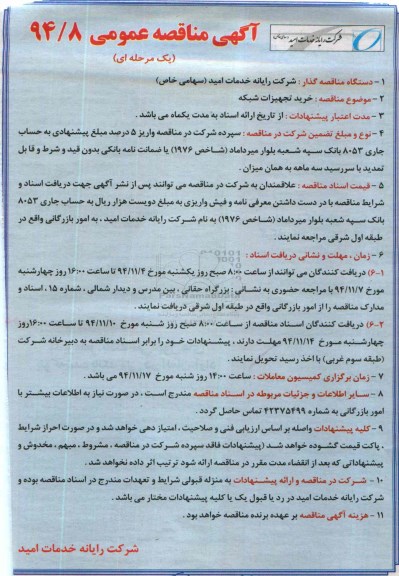 شرکت رایانه خدمات امید
آگهی مناقصه عمومی ۹۴/۸
(یک مرحله ای)
۱ - دستگاه مناقصه گذار : شرکت رایانه خدمات امید (سهامی خاص)
۲ - موضوع مناقصه : خرید تجهیزات شبکه
۳ - مدت اعتبار پیشنهادات : از تاریخ ارائه اسناد به مدت یکماه می باشد .
۴ - نوع و مبلغ تضمین شرکت در مناقصه : سپرده شرکت در مناقصه واریز ۵ درصد مبلغ پیشنهادی به حساب
جاری ۸۰۵۳ بانک سپه شعبه بلوار میرداماد (شاخص ۱۹۷۶) یا ضمانت نامه بانکی بدون قید و شرط و قابل
تمدید با سررسید سه ماهه به همان میزان .
۵ - قیمت اسناد مناقصه : علاقمندان به شرکت در مناقصه می توانند پس از نشر آگهی جهت دریافت اسناد و
شرایط مناقصه با در دست داشتن معرفی نامه و فیش واریزی به مبلغ دویست هزار ریال به حساب جاری ۸۰۵۳
بانک سپه شعبه بلوار میرداماد (شاخص ۱۹۷۶) به نام شرکت رایانه خدمات امید ، به امور بازرگانی واقع در
طبقه اول شرقی مراجعه نمایند .
۶ - زمان ، مهلت و نشانی دریافت اسناد :
۶-۱) دریافت کنندگان می توانند از ساعت ۸:۰۰ صبح روز یکشنبه مورخ ۹۴/۱۱/۴ تا ساعت ۱۶:۰۰ روز چهارشنبه
مورخ ۹۴/۱۱/۷ با مراجعه حضوری به نشانی : بزرگراه حقانی ، بین مدرس و دیدار شمالی ، شماره ۱۵ ، اسناد و
مدارک مناقصه را از امور بازرگانی واقع در طبقه اول شرقی دریافت نمایند .
۶-۲) دریافت کنندگان اسناد مناقصه از ساعت ۸:۰۰ صبح روز شنبه مورخ ۹۴/۱۱/۱۰ تا ساعت ۱۶:۰۰ روز
چهارشنبه مورخ ۹۴/۱۱/۱۴ مهلت دارند ، پیشنهادات خود را برابر اسناد مناقصه به دبیرخانه شرکت
(طبقه سوم غربی) با اخذ رسید تحویل نمایند .
۷ - زمان برگزاری کمیسیون معاملات : ساعت ۱۴:۰۰ روز شنبه مورخ ۹۴/۱۱/۱۷ می باشد .
۸ - سایر اطلاعات و جزئیات مربوطه در اسناد مناقصه مندرج است ، در صورت نیاز به اطلاعات بیشتر با
امور بازرگانی به شماره ۴۲۳۷۵۴۹۹ تماس حاصل گردد .
۹ - کلیه پیشنهادات واصله بر اساس ارزیابی فنی و صلاحیت ، امتیاز دهی خواهد شد و در صورت احراز شرایط
، پاکت قیمت گشوده خواهد شد (پیشنهادات فاقد سپرده شرکت در مناقصه ، مشروط ، مبهم ، مخدوش و
پیشنهاداتی که بعد از انقضاء مدت مقرر در مناقصه ارائه شود ترتیب اثر داده نخواهد شد .
۱۰ - شرکت در مناقصه و ارائه پیشنهادات به منزله قبولی شرایط و تعهدات مندرج در اسناد مناقصه بوده و
شرکت رایانه خدمات امید در رد یا قبول یک یا کلیه پیشنهادات مختار می باشد .
۱۱ - هزینه آگهی مناقصه بر عهده برنده مناقصه خواهد بود .
شرکت رایانه خدمات امید